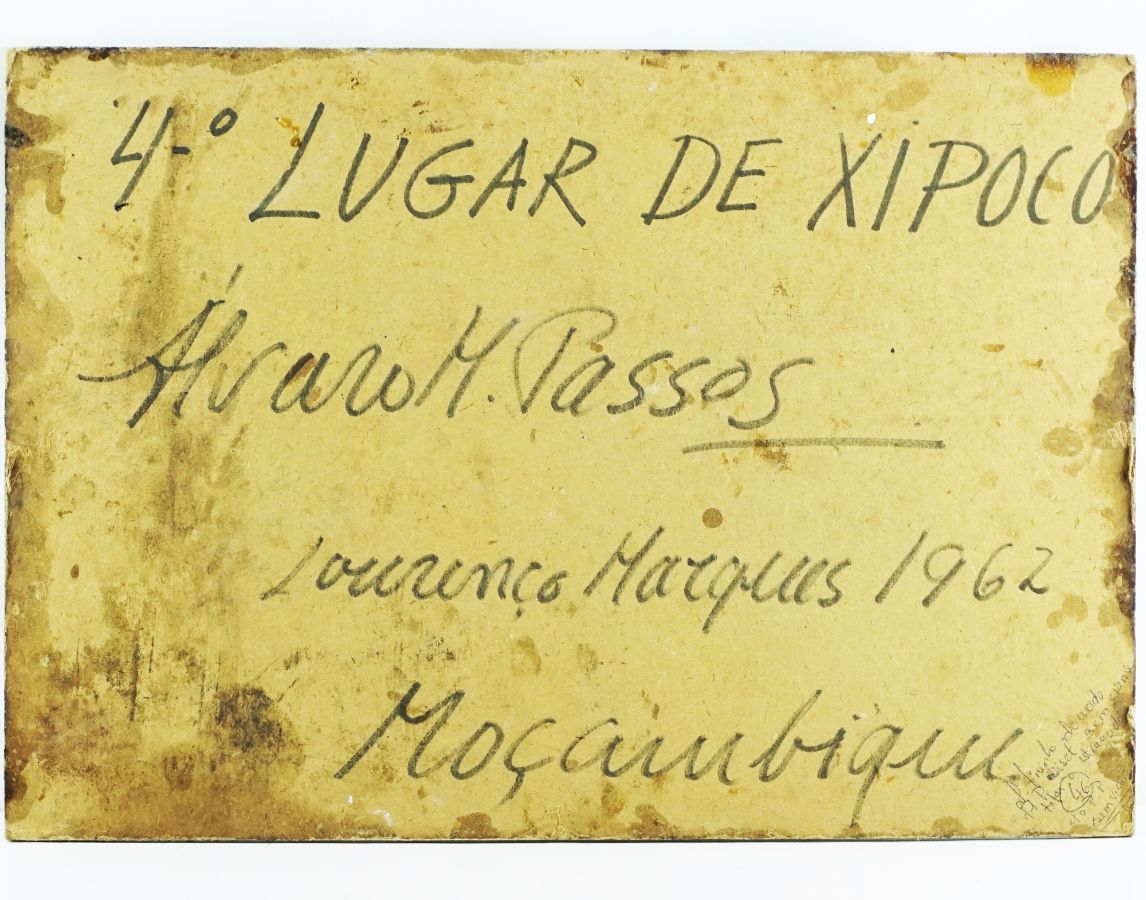 4º LUGAR DE XIPOCO
Álvaro M. Passos
Lourenço Marques 1962
Moçambique
46